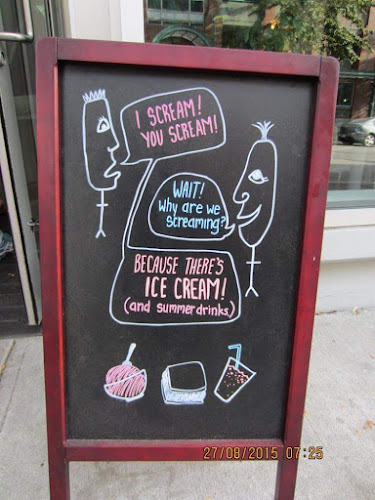 I SCREAM!
YOU SCREAM!
WAIT!
Why are we
screaming?
BECAUSE THERE'S
ICE CREAM!
(and summer drinks)
27/08/2015 07:25